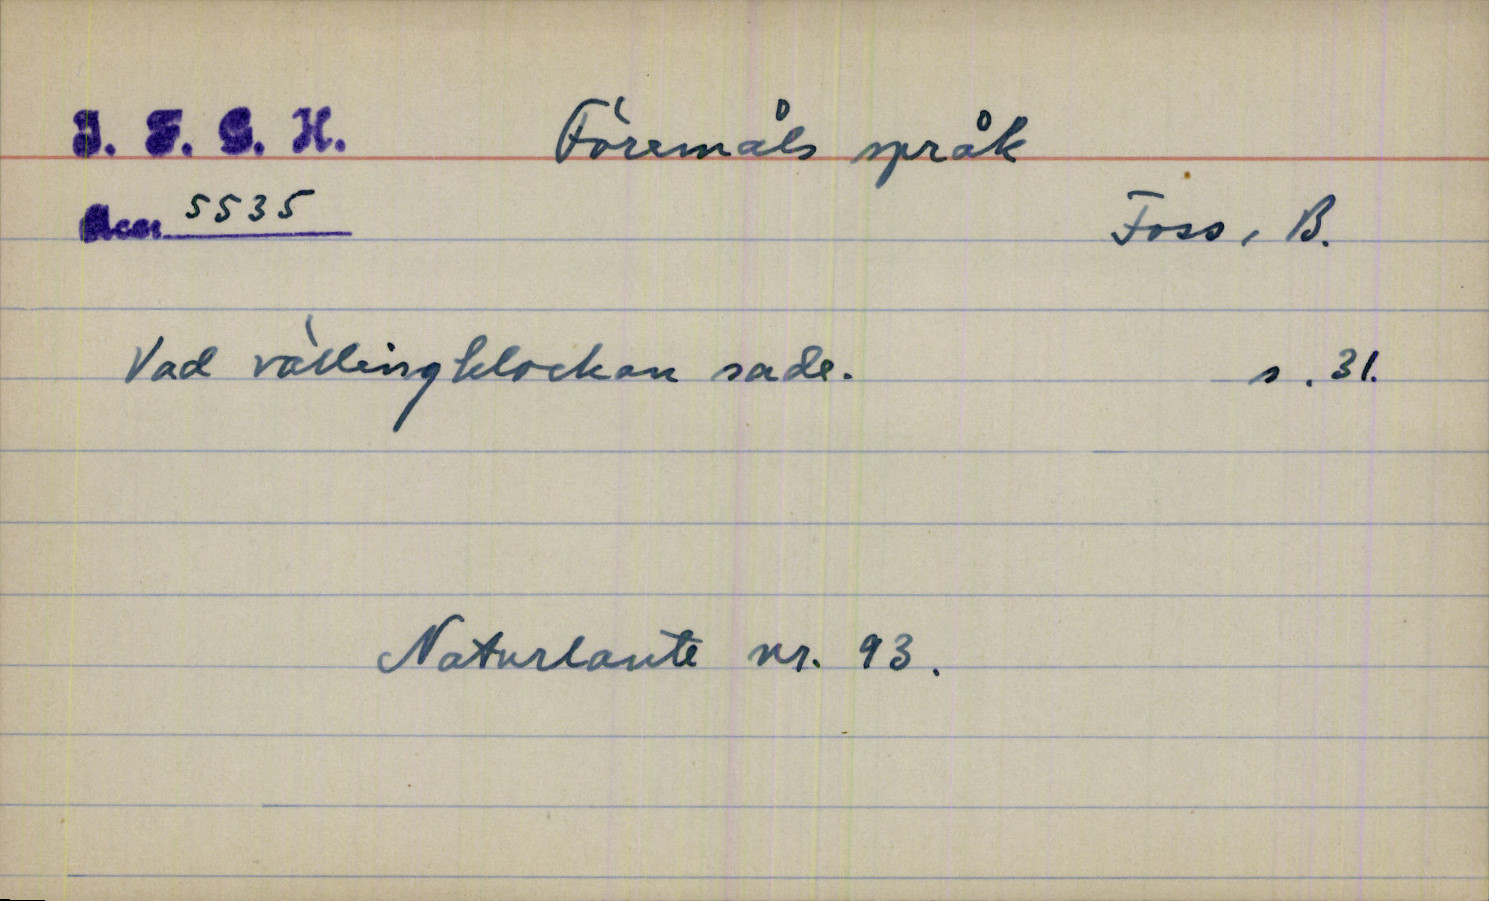 I. F. G. H. Föremåls språk
Acc. 5535
Foss, B.
Vad vällingklockan sade. s. 31.
Naturlaute nr. 93.